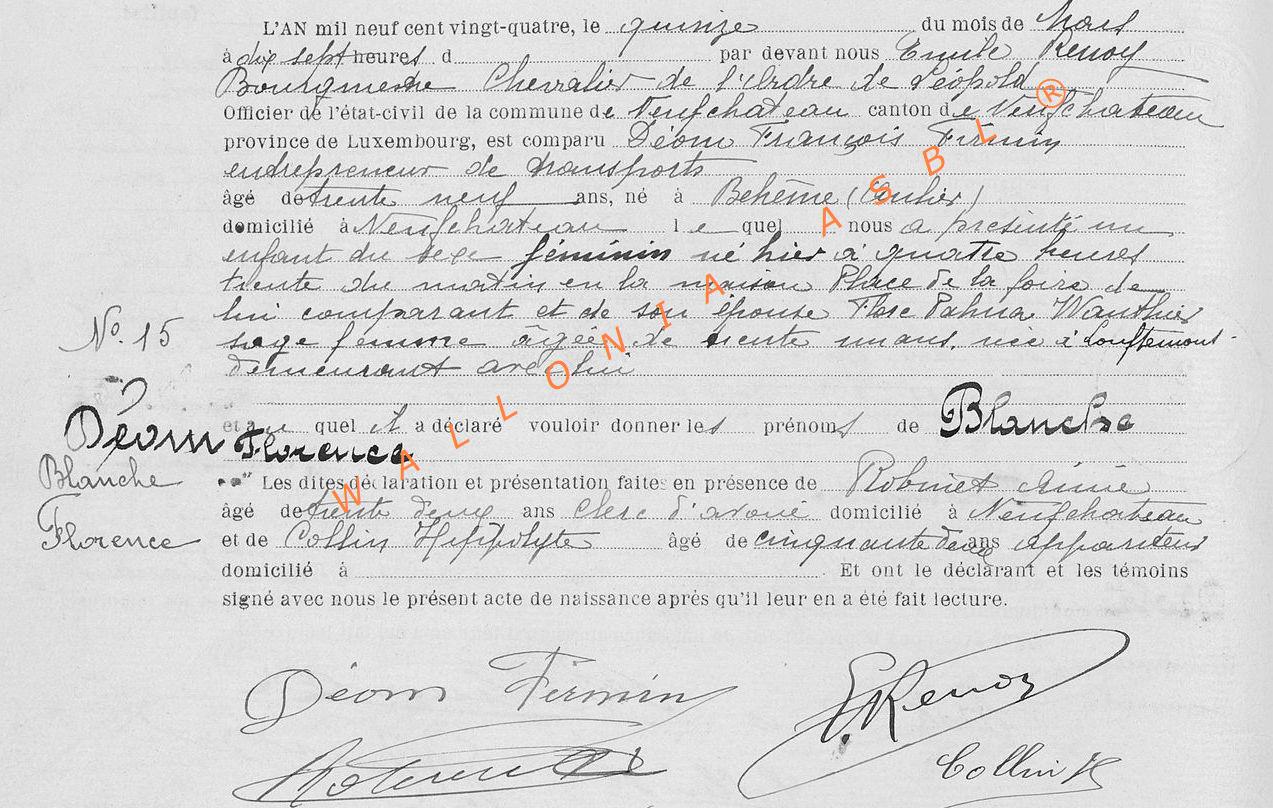 L'AN mil neuf cent vingt-quatre, le quinze du mois de Mars
à dix sept heures d par devant nous Emile Renoy
Bourgmestre Chevalier de l'Ordre de Léopold
Officier de l'état-civil de la commune de Neufchateau canton de Neufchateau
province de Luxembourg, est comparu Déom François Firmin
entrepreneur de transports
âgé de trente neuf ans, né à Behême (Anlier)
domicilié à Neufchateau le quel nous a présenté un
enfant du sexe féminin né hier à quatre heures
trente du matin en la maison Place de la foire de
lui comparant et de son épouse Flore Palma Wauthier
N° 15
sage femme âgée de trente un ans, née à Louftémont
demeurant avec lui
et au quel il a déclaré vouloir donner les prénoms de Blanche
Déom
Florence
Blanche
Florence
Les dites déclaration et présentation faites en présence de Robinet Aimé
âgé de trente deux ans Clerc d'avoué domicilié à Neufchateau
et de Collin Hippolyte âgé de cinquante deux ans appariteur
domicilié à . Et ont le déclarant et les témoins
signé avec nous le présent acte de naissance après qu'il leur en a été fait lecture.
Déom Firmin
E. Renoy
Collin H
WALLONIA ASBL ®